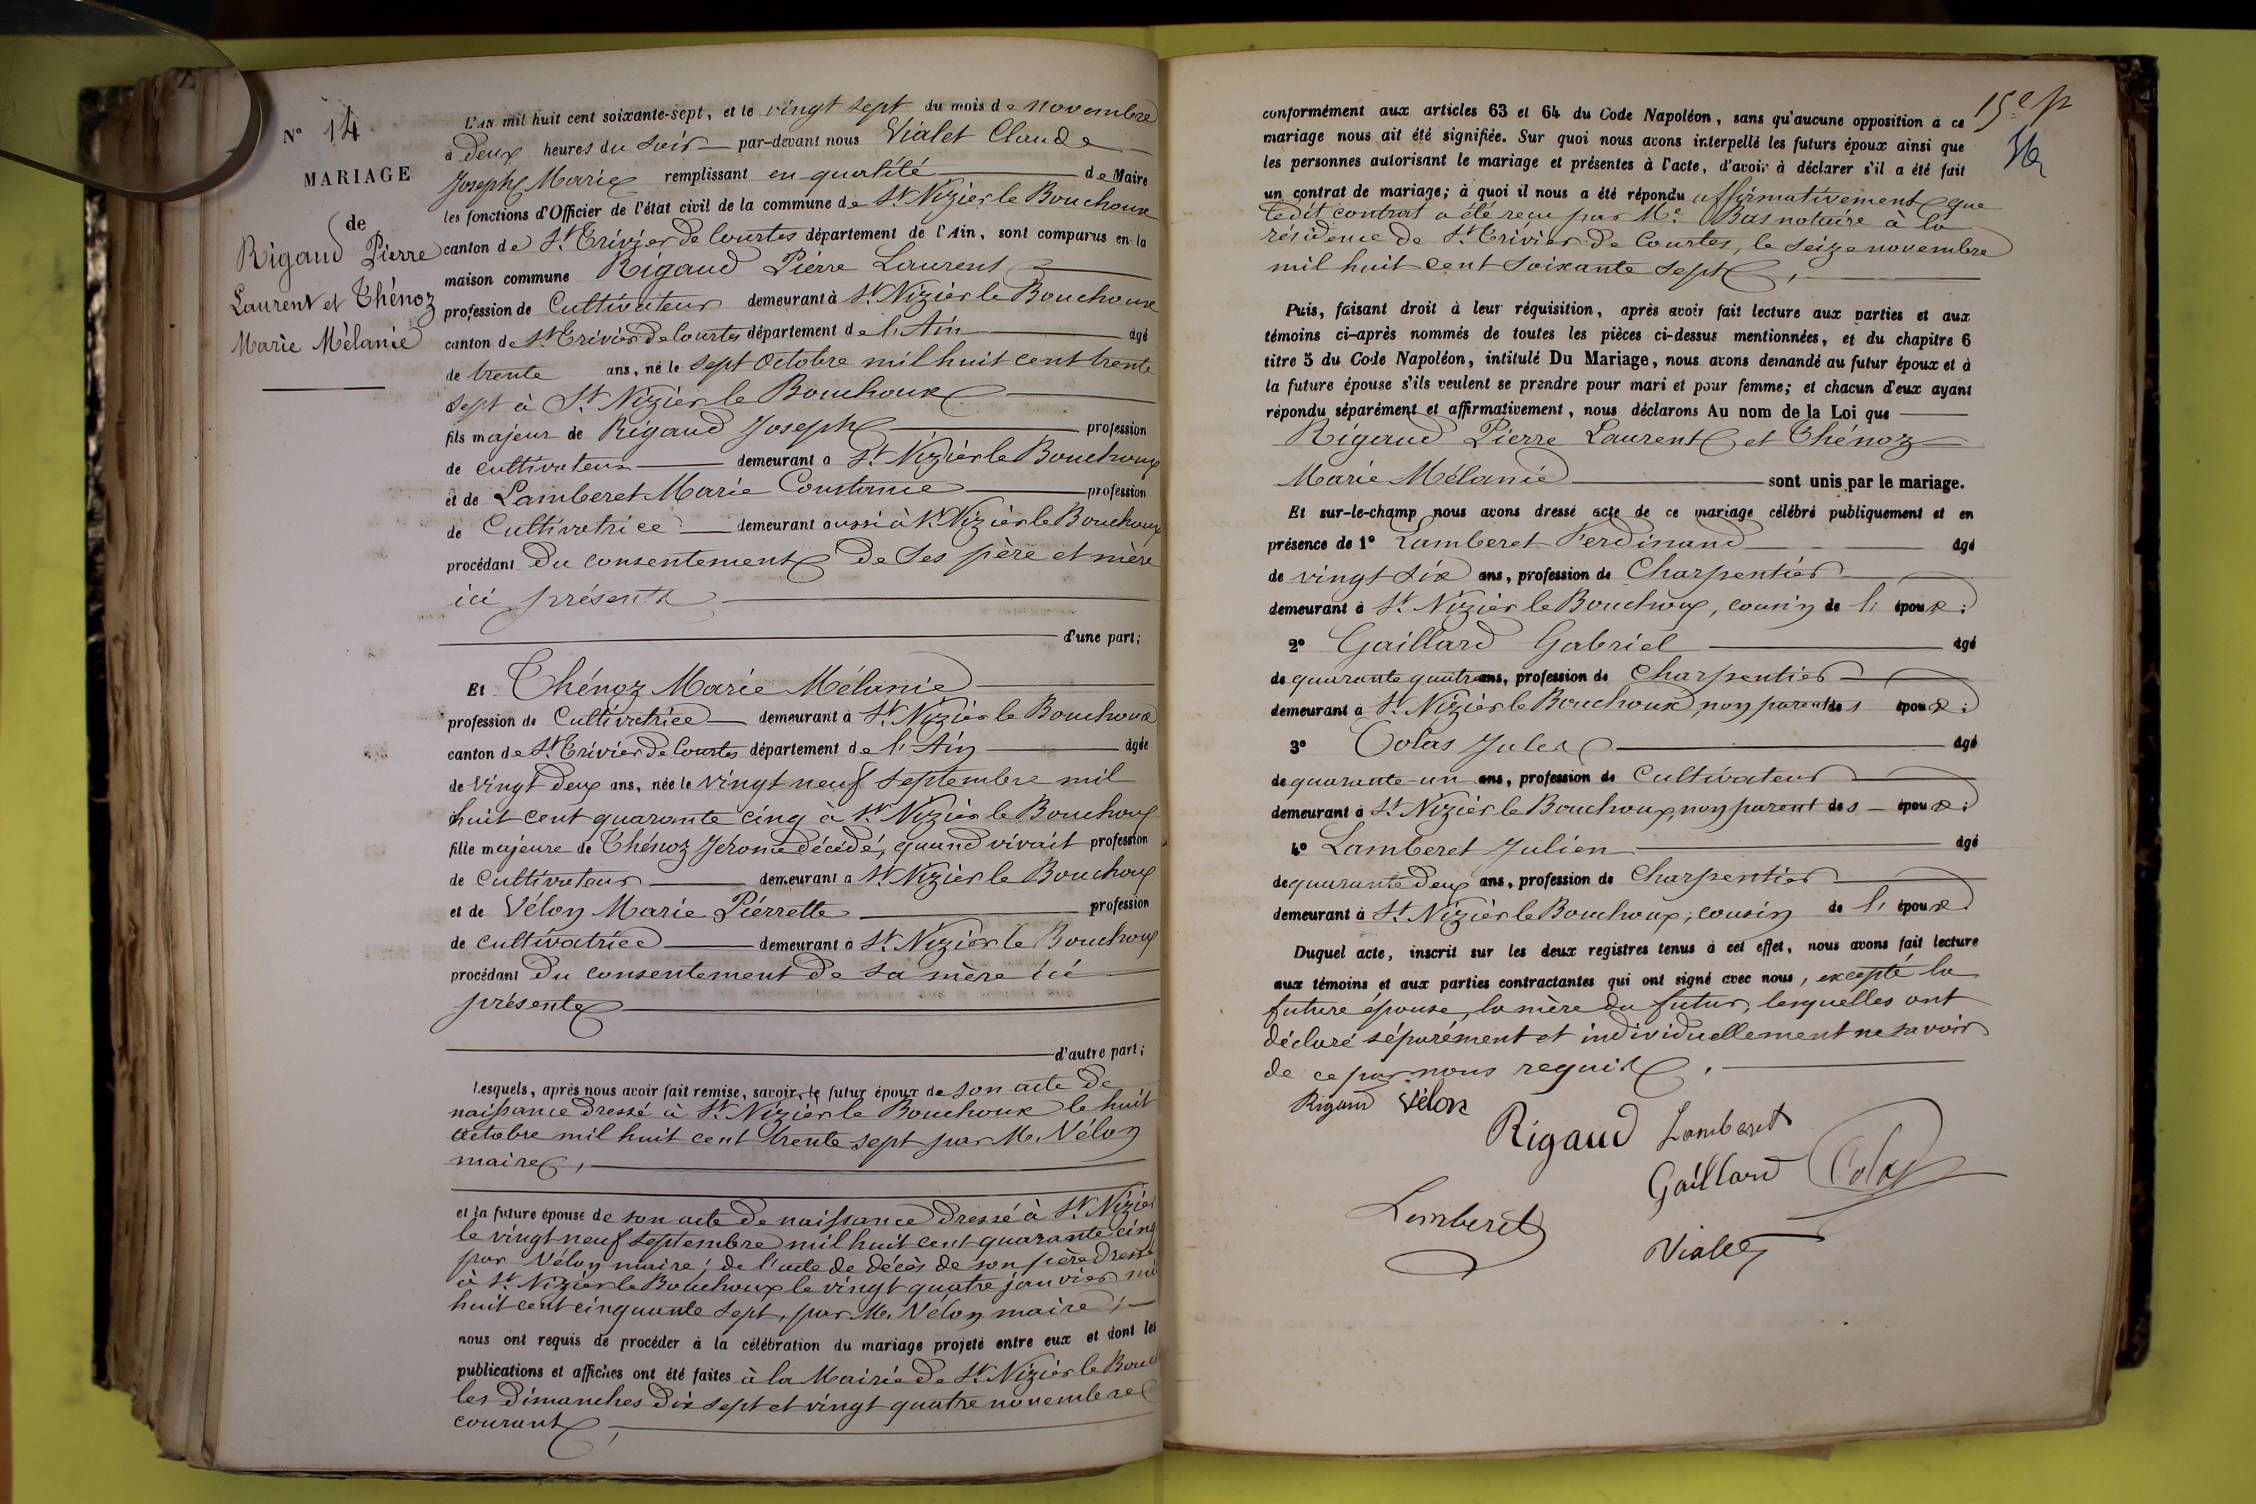 N° 14
MARIAGE
de
Rigaud Pierre
Laurent et Thénoz
Marie Mélanie
L'AN mil huit cent soixante-sept, et le vingt sept du mois de novembre
à deux heures du soir par-devant nous Vialet Claude
Joseph Marie remplissant en qualité de Maire
les fonctions d'Officier de l'état civil de la commune de St Nizier le Bouchoux
canton de St Trivier de Courtes département de l'Ain, sont comparus en la
maison commune Rigaud Pierre Laurent
profession de Cultivateur demeurant à St Nizier le Bouchoux
canton de St Trivier de Courtes département de l'Ain âgé
de trente ans, né le sept Octobre mil huit cent trente
sept à St Nizier le Bouchoux
fils majeur de Rigaud Joseph profession
de cultivateur demeurant à St Nizier le Bouchoux
et de Lamberet Marie Constance profession
de Cultivatrice demeurant aussi à St Nizier le Bouchoux
procédant Du consentement de ses père et mère
ici présents
d'une part;
Et Thénoz Marie Mélanie
profession de Cultivatrice demeurant à St Nizier le Bouchoux
canton de St Trivier de Courtes département de l'Ain âgée
de vingt deux ans, née le vingt neuf septembre mil
huit cent quarante cinq à St Nizier le Bouchoux
fille majeure de Thénoz Jérome décédé, quand vivait profession
de Cultivateur demeurant à St Nizier le Bouchoux
et de Vélon Marie Pierrette profession
de cultivatrice demeurant à St Nizier le Bouchoux
procédant Du consentement de sa mère ici
présente
d'autre part;
Lesquels, après nous avoir fait remise, savoir, le futur époux de son acte de
naissance dressé à St Nizier le Bouchoux le huit
octobre mil huit cent trente sept par M. Vélon
maire,
et la future épouse de son acte de naissance dressé à St Nizier
le vingt neuf septembre mil huit cent quarante cinq
par Vélon maire; de l'acte de décès de son père dressé
à St Nizier le Bouchoux le vingt quatre janvier mil
huit cent cinquante sept, par M. Vélon maire;
nous ont requis de procéder à la célébration du mariage projeté entre eux et dont les
publications et affiches ont été faites à la Mairie de St Nizier le Bouch
les Dimanches Dix sept et vingt quatre novembre
courant,
15e p
conformément aux articles 63 et 64 du Code Napoléon, sans qu'aucune opposition à ce
mariage nous ait été signifiée. Sur quoi nous avons interpellé les futurs époux ainsi que
les personnes autorisant le mariage et présentes à l'acte, d'avoir à déclarer s'il a été fait
un contrat de mariage; à quoi il nous a été répondu affirmativement que
ledit contrat a été reçu par Me Bas notaire à la
résidence de St Trivier de Courtes, le seize novembre
mil huit cent soixante sept,
Puis, faisant droit à leur réquisition, après avoir fait lecture aux parties et aux
témoins ci-après nommés de toutes les pièces ci-dessus mentionnées, et du chapitre 6
titre 5 du Code Napoléon, intitulé Du Mariage, nous avons demandé au futur époux et à
la future épouse s'ils veulent se prendre pour mari et pour femme; et chacun d'eux ayant
répondu séparément et affirmativement, nous déclarons Au nom de la Loi que
Rigaud Pierre Laurent et Thénoz
Marie Mélanie sont unis par le mariage.
Et sur-le-champ nous avons dressé acte de ce mariage célébré publiquement et en
présence de 1° Lamberet Ferdinand âgé
de vingt six ans, profession de Charpentier
demeurant à St Nizier le Bouchoux, cousin de l' époux;
2° Gaillard Gabriel âgé
de quarante quatre ans, profession de Charpentier
demeurant à St Nizier le Bouchoux, non parent des époux;
3° Colas Jules âgé
de quarante un ans, profession de Cultivateur
demeurant à St Nizier le Bouchoux, non parent des époux;
4° Lamberet Julien âgé
de quarante deux ans, profession de Charpentier
demeurant à St Nizier le Bouchoux, cousin de l' époux.
Duquel acte, inscrit sur les deux registres tenus à cet effet, nous avons fait lecture
aux témoins et aux parties contractantes qui ont signé avec nous, excepté la
future épouse, la mère du futur, lesquelles ont
déclaré séparément et individuellement ne savoir
de ce par nous requis.
Rigaud Vélon
Rigaud Lamberet
Gaillard Colas
Lamberet
Vialet